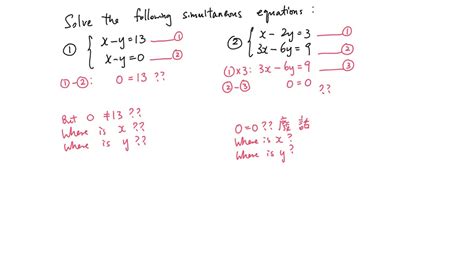 Solve the following simultaneous equations :
① { x - y = 13 ①
x - y = 0 ②
① - ② : 0 = 13 ??
But 0 ≠ 13 ??
Where is x ??
Where is y ??
② { x - 2y = 3 ①
3x - 6y = 9 ②
① × 3 : 3x - 6y = 9 ③
② - ③ 0 = 0 ??
0 = 0 ?? 廢話
Where is x ?
Where is y ?